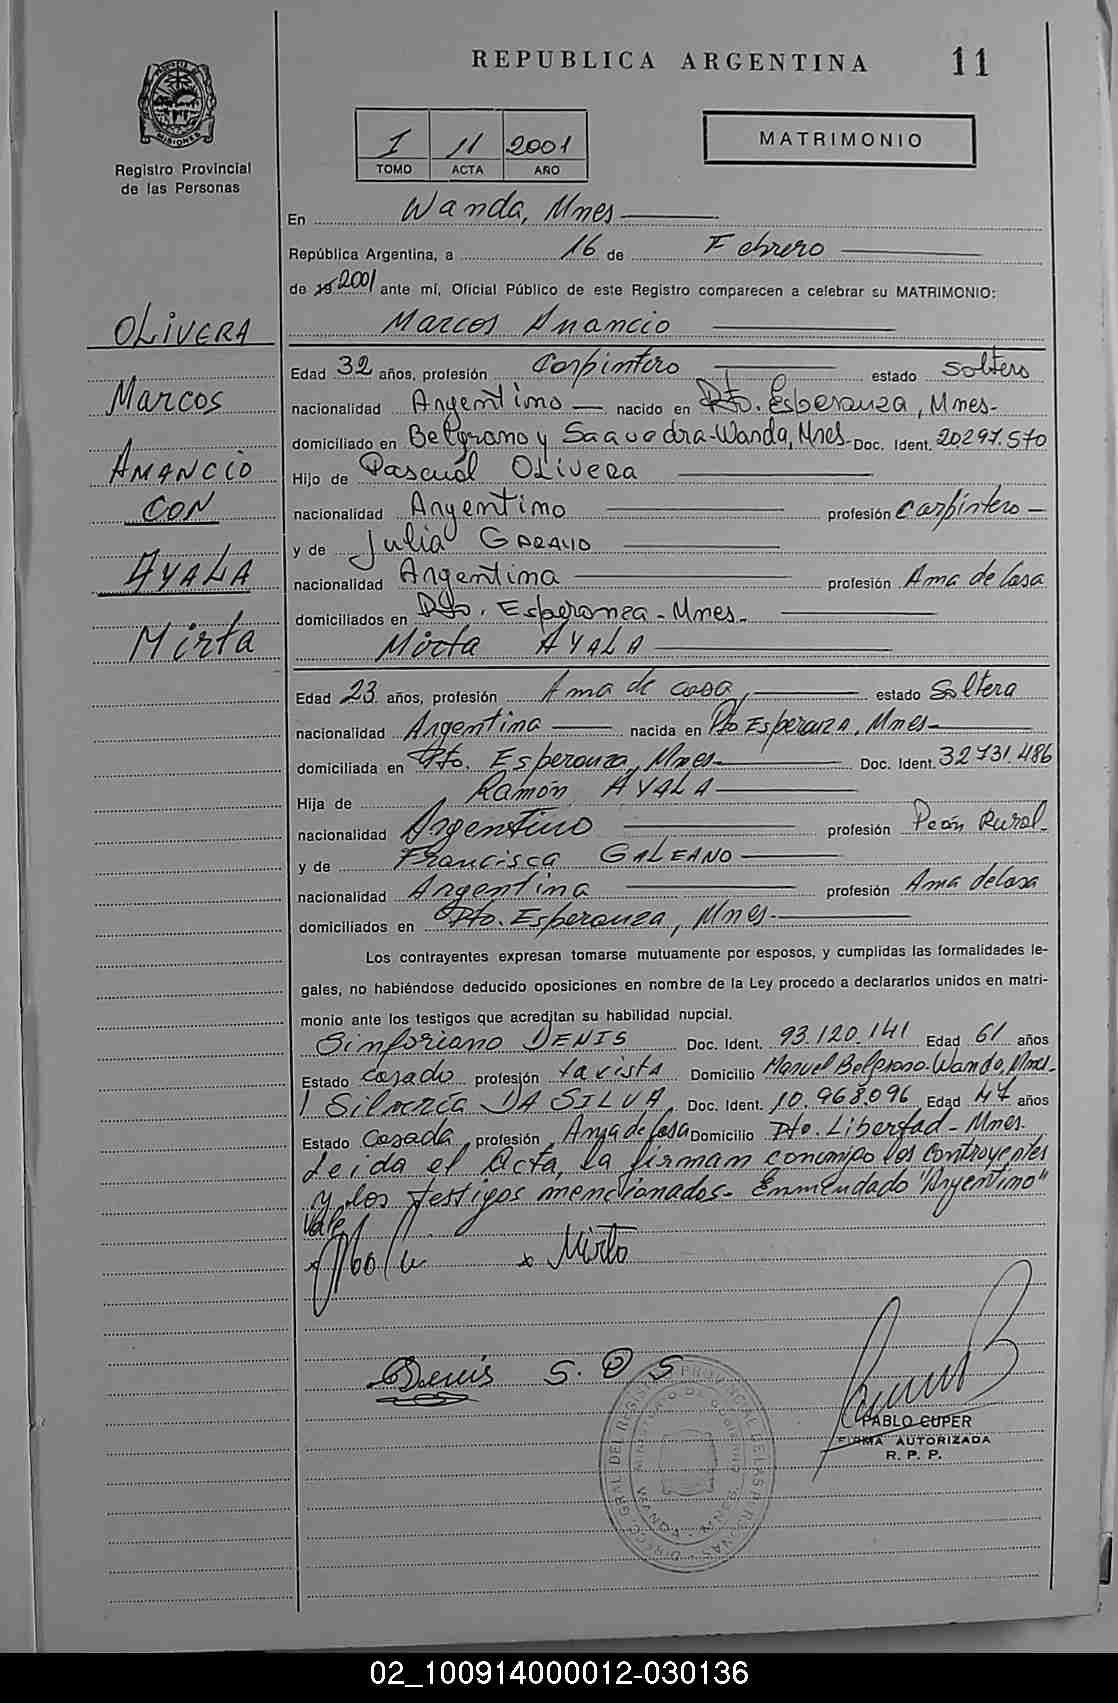 REPUBLICA ARGENTINA 11
MISIONES
Registro Provincial
de las Personas
I 11 2001
TOMO ACTA AÑO
MATRIMONIO
En Wanda, Mnes
República Argentina, a 16 de Febrero
de 19 2001 ante mí, Oficial Público de este Registro comparecen a celebrar su MATRIMONIO:
OLIVERA
Marcos
AMANCIO
CON
AYALA
Mirta
Marcos Amancio
Edad 32 años, profesión Carpintero estado Soltero
nacionalidad Argentino nacido en Pto. Esperanza, Mnes-
domiciliado en Belgrano y Saavedra-Wanda, Mnes- Doc. Ident. 20297.570
Hijo de Pascual OLIVERA
nacionalidad Argentino profesión Carpintero-
y de Julia
nacionalidad Argentina profesión Ama de Casa
domiciliados en Pto. Esperanza - Mnes-
Mirta AYALA
Edad 23 años, profesión Ama de casa, estado Soltera
nacionalidad Argentina nacida en Pto Esperanza, Mnes-
domiciliada en Pto. Esperanza, Mnes- Doc. Ident. 32731.486
Hija de Ramón AYALA
nacionalidad Argentino profesión Peón Rural-
y de Francisca GALEANO
nacionalidad Argentina profesión Ama de Casa
domiciliados en Pto. Esperanza, Mnes-
Los contrayentes expresan tomarse mutuamente por esposos, y cumplidas las formalidades le-
gales, no habiéndose deducido oposiciones en nombre de la Ley procedo a declararlos unidos en matri-
monio ante los testigos que acreditan su habilidad nupcial.
Sinforiano DENIS Doc. Ident. 93.120.141 Edad 61 años
Estado Casado profesión taxista Domicilio Manuel Belgrano-Wanda, Mnes-
DA SILVA Doc. Ident. 10.968.096 Edad 47 años
Estado Casada, profesión, Ama de Casa Domicilio Pto. Libertad - Mnes.
Leida el Acta, la firman conmigo los contrayentes
y los testigos mencionados- Enmendado "Argentino"
Vale
x x Mirta
Denis S. D S
PABLO CUPER
FIRMA AUTORIZADA
R. P. P.
02_100914000012-030136